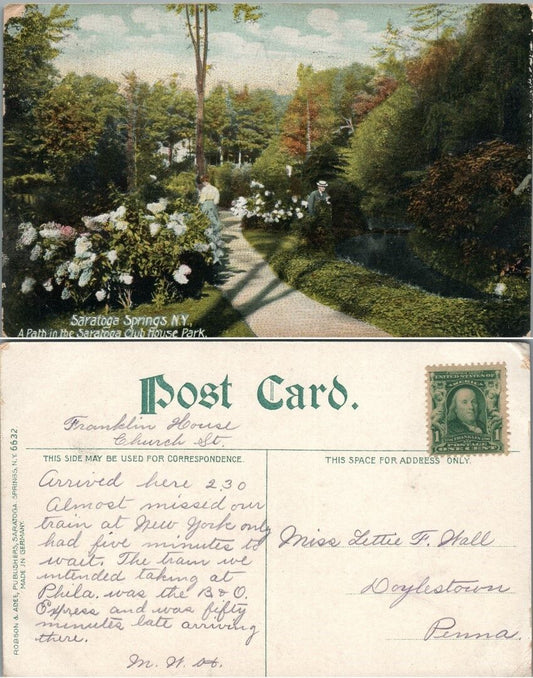 Saratoga Springs, N.Y.
A Path in the Saratoga Club House Park.
Post Card.
Franklin House
Church St.
THIS SIDE MAY BE USED FOR CORRESPONDENCE.
THIS SPACE FOR ADDRESS ONLY.
ROBSON & ADEE, PUBLISHERS, SARATOGA SPRINGS, N.Y. 6632
MADE IN GERMANY.
Arrived here 2.30
Almost missed our
train at New York only
had five minutes to
wait. The train we
intended taking at
Phila. was the B & O.
Express and was fifty
minutes late arriving
there.
M. H.
Miss Lettie F. Wall
Doylestown
Penna.
UNITED STATES OF AMERICA
1
FRANKLIN
ONE CENT